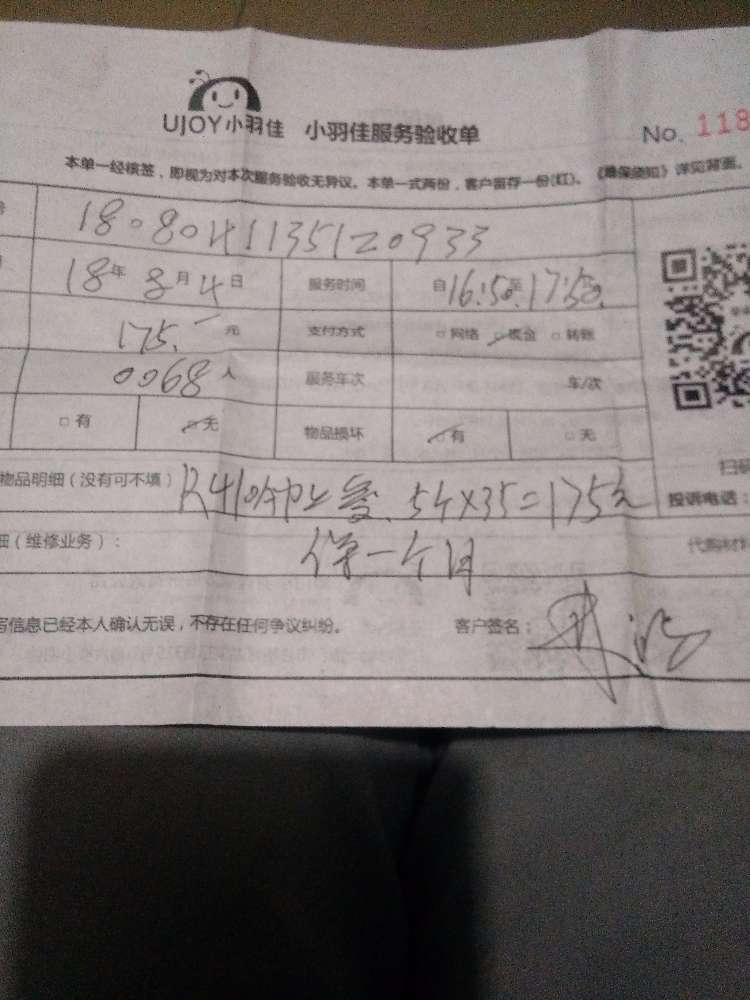 UJOY小羽佳 小羽佳服务验收单 No. 118
本单一经核签，即视为对本次服务验收无异议。本单一式两份，客户留存一份(红)。《维保须知》详见背面。
号 1808041135120933
18年8月4日 服务时间 自16:50至17:50
175.一元 支付方式 □网络 ☑现金 □转账
0068人 服务车次 车/次
□有 ☑无 物品损坏 ☑有 □无
扫码
物品明细（没有可不填） 5×35=175元 投诉电话：
细（维修业务）： 保一个月 代购材料
写信息已经本人确认无误，不存在任何争议纠纷。 客户签名：